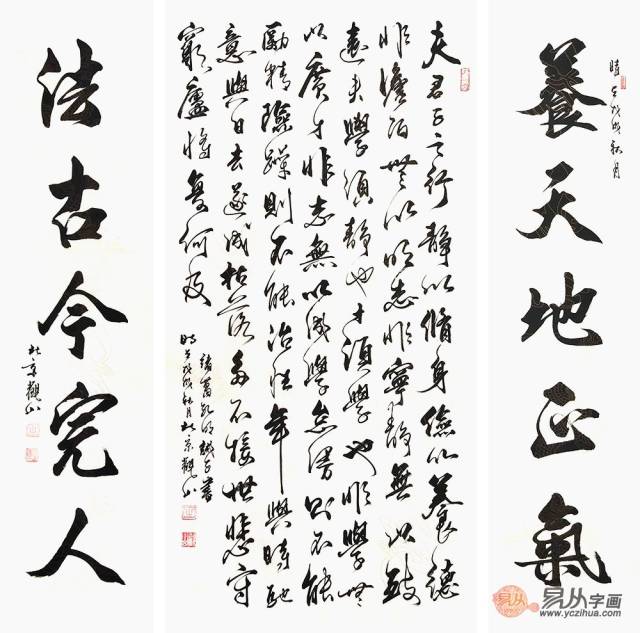 時在戊戌秋月
養天地正氣
夫君子之行靜以脩身儉以養德
非澹泊無以明志非寧靜無以致
遠夫學須靜也才須學也非學無
以廣才非志無以成學怠慢則不能
勵精險躁則不能治性年與時馳
意與日去遂成枯落多不接世悲守
窮廬將復何及
諸葛孔明誡子書
時在戊戌秋月北京觀山
法古今完人
北京觀山
易从字画
www.yczihua.com